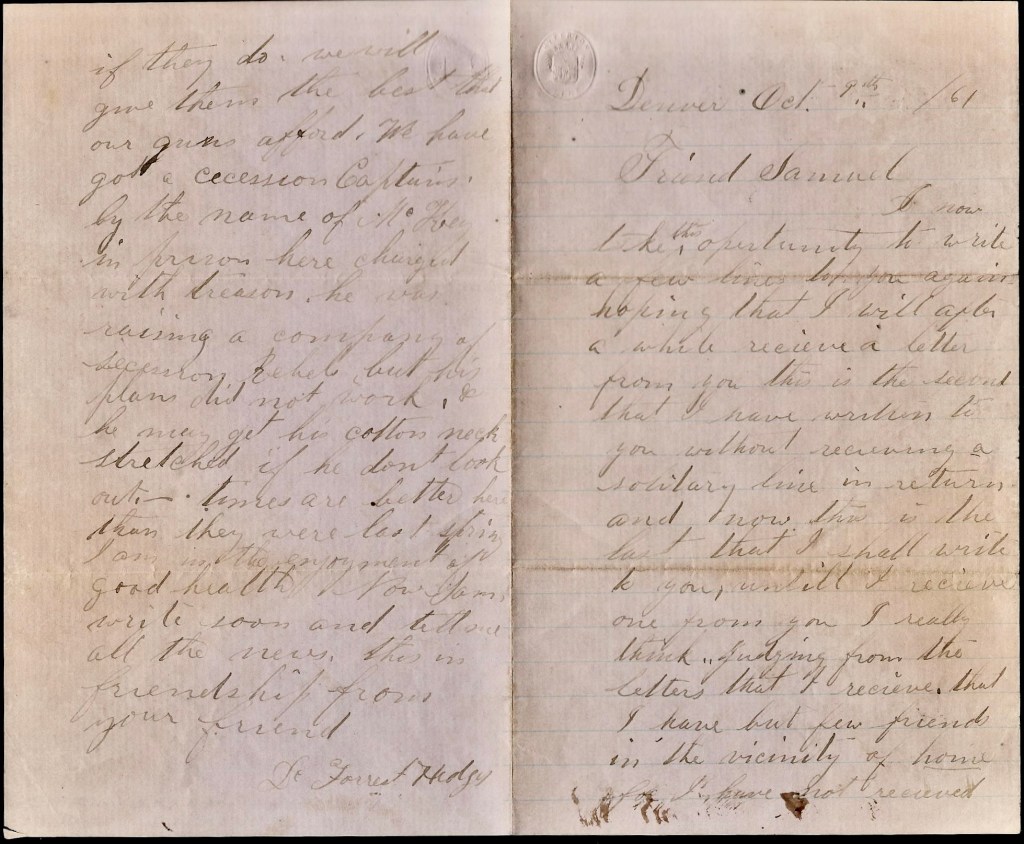 Denver Oct. 9th /61
Friend Samuel
I now
take this opertunity to write
a few lines to you again
hoping that I will after
a while recieve a letter
from you this is the second
that I have written to
you without recieving a
solitary line in return
and, now this is the
last that I shall write
to you, untill I recieve
one from you I really
think, judging from the
letters that I recieve, that
I have but few friends
in the vicinity of home
for I have not recieved
if they do. we will
give them the best that
our guns afford. We have
got a cecession Captain.
by the name of McKee
in prison here charged
with treason. he was
raising a company of
secession Rebels but his
plans did not work, &
he may get his cotton neck
stretched if he dont look
out. — times are better here
than they were last spring
I am in the enjoyment of
good health Now Sam.
write soon and tell me
all the news. this in
friendship from
your friend
De Forrest Hedges